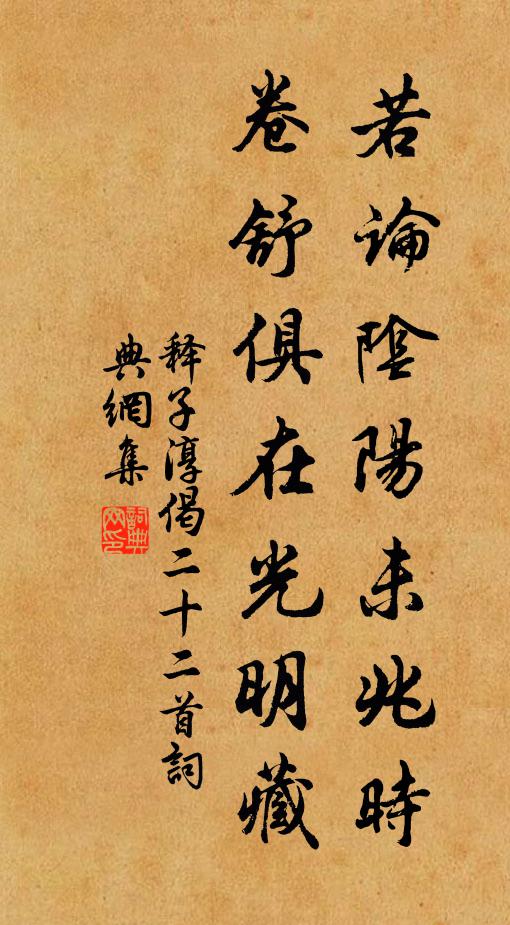 若論陰陽未兆時
卷舒俱在光明藏
释子淳偈二十二首詞
典網集
詞典網印